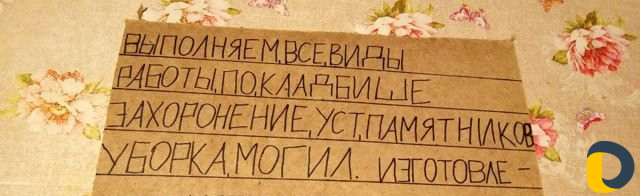 ВЫПОЛНЯЕМ,ВСЕ,ВИДЫ
РАБОТЫ,ПО,КЛАДБИШЕ
ЗАХОРОНЕНИЕ,УСТ,ПАМЯТНИКОВ
УБОРКА,МОГИЛ. ИЗГОТОВЛЕ-